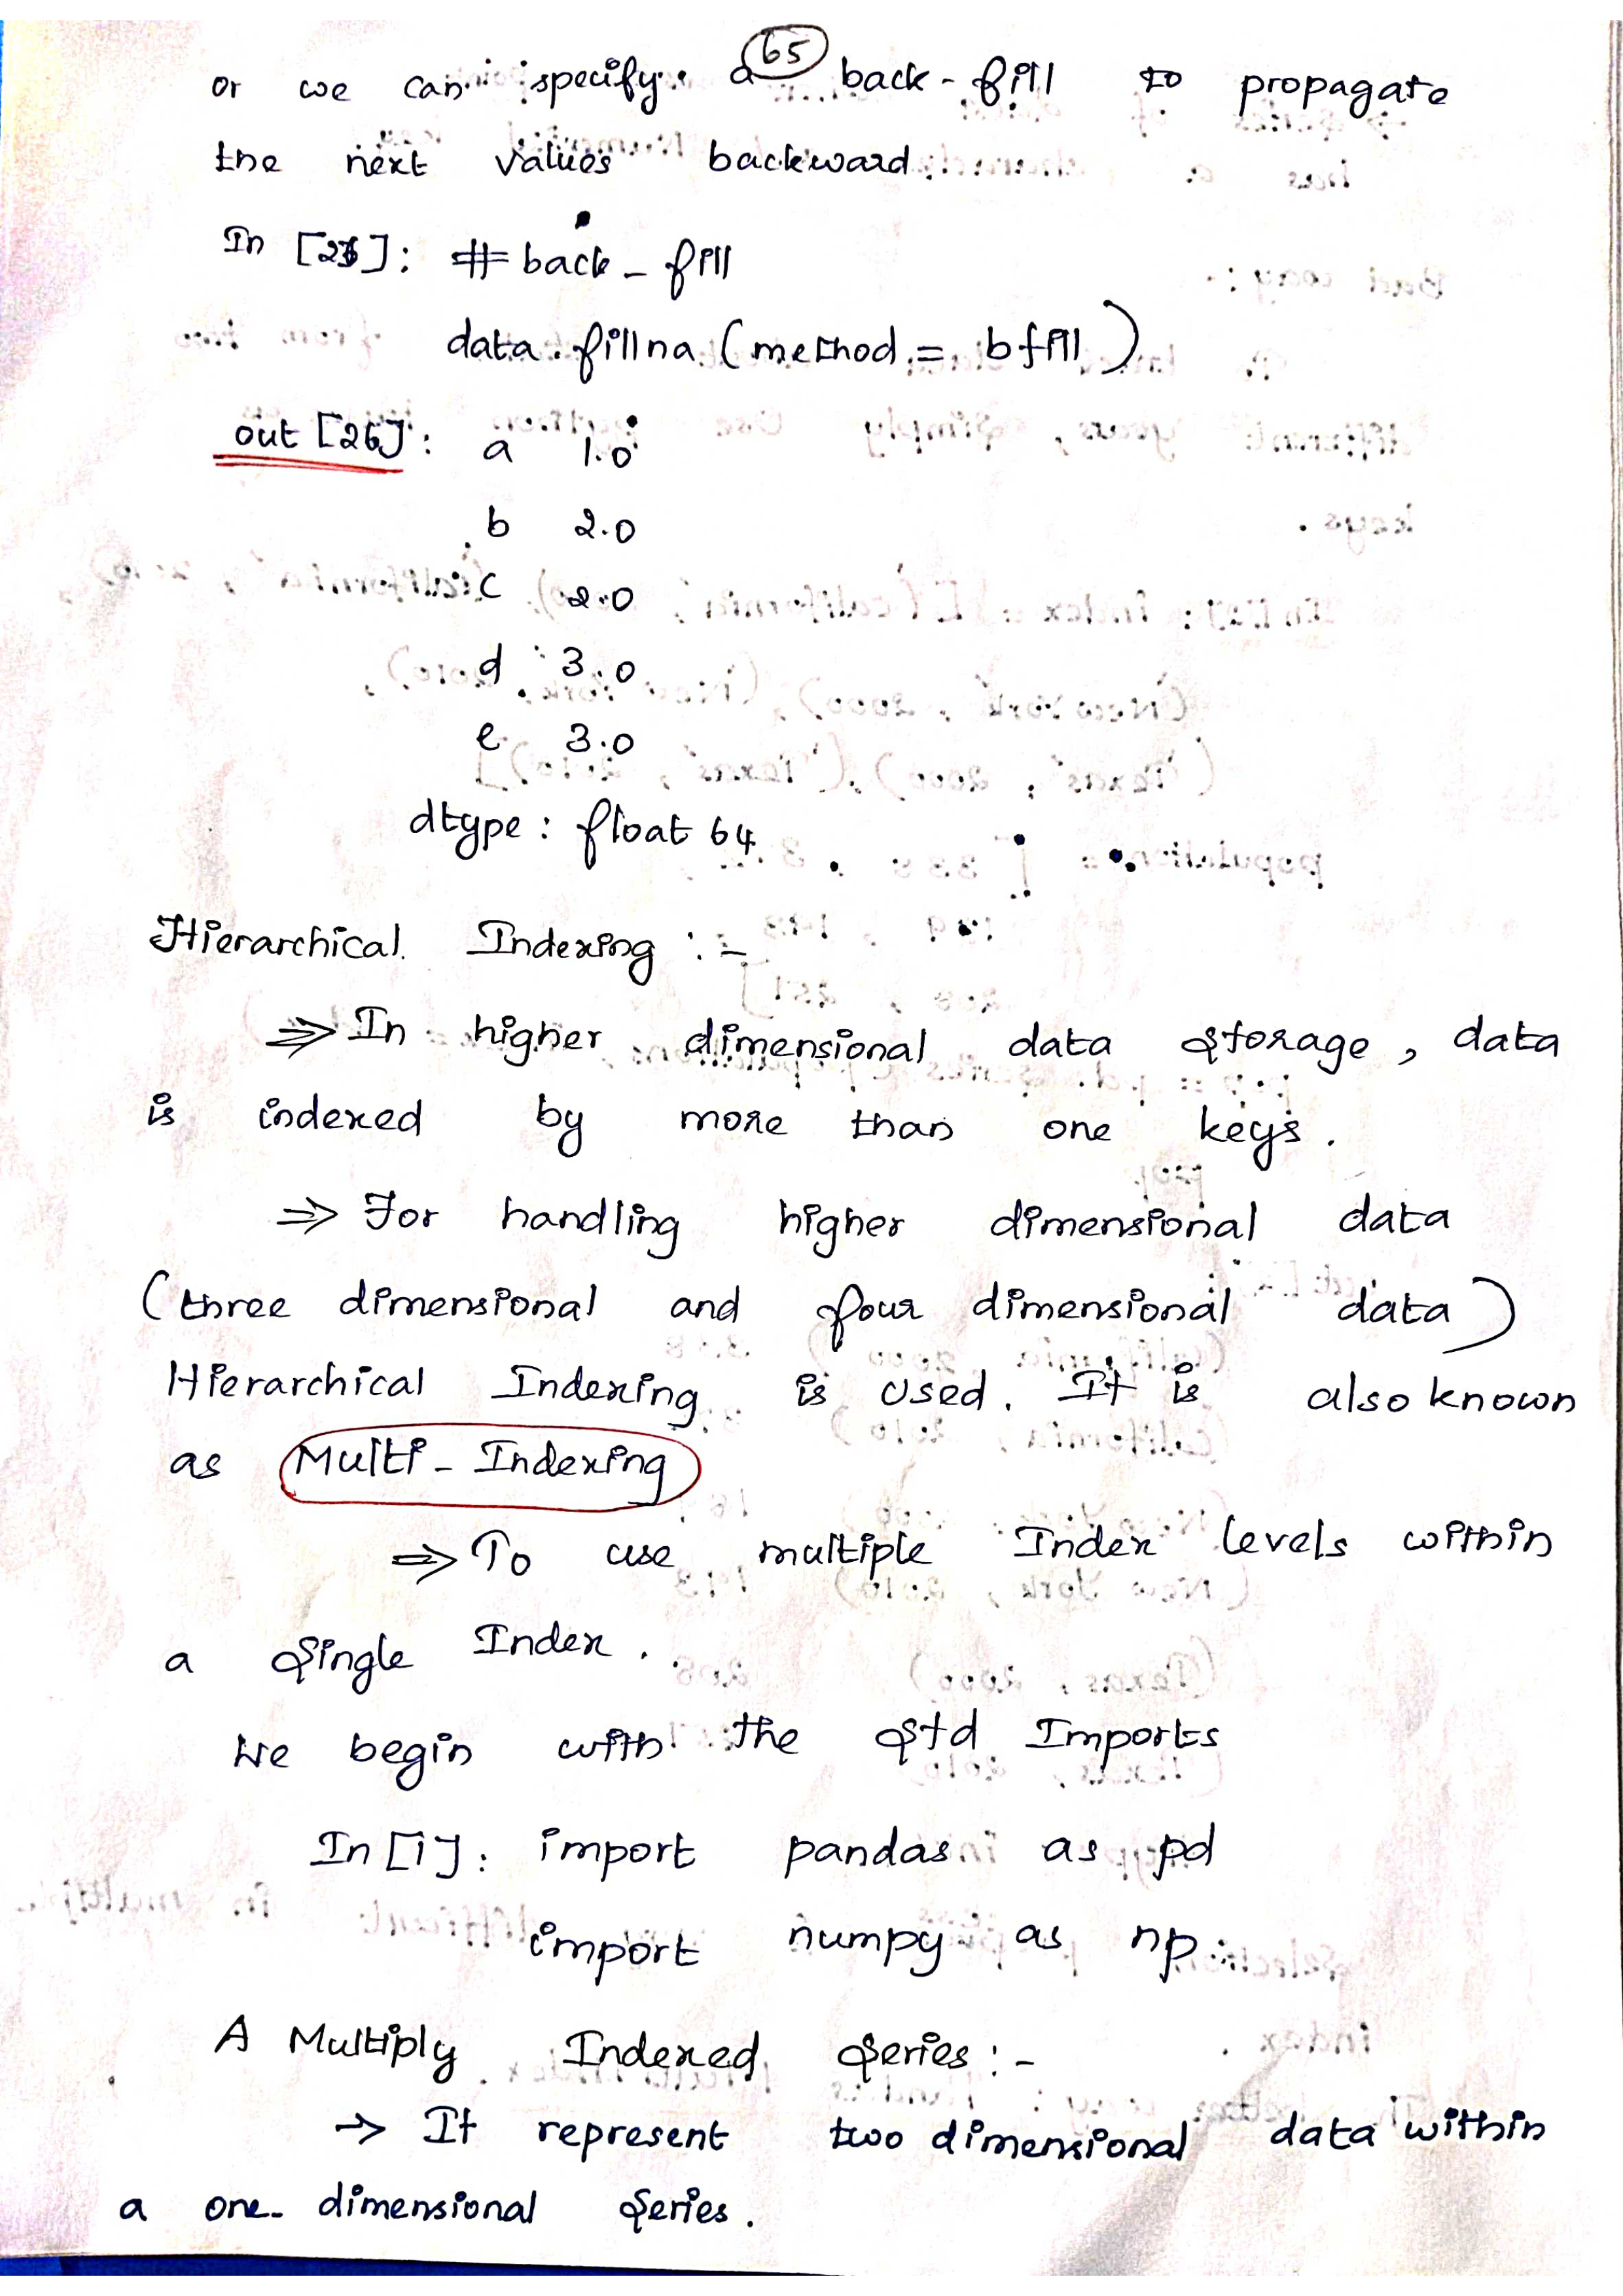 65
or we can specify a back-fill to propagate
the next values backward
In [26]: # back-fill
data.fillna (method = bfill)
out [26]: a 1.0
b 2.0
c 2.0
d 3.0
e 3.0
dtype : float 64
Hierarchical Indexing :-
⇒ In higher dimensional data storage, data
is indexed by more than one keys.
⇒ For handling higher dimensional data
(three dimensional and four dimensional data)
Hierarchical Indexing is used. It is also known
as Multi-Indexing
⇒ To use multiple Index levels within
a single Index.
We begin with the std Imports
In [1]: import pandas as pd
import numpy as np
A Multiply Indexed series :-
→ It represent two dimensional data within
a one-dimensional series.